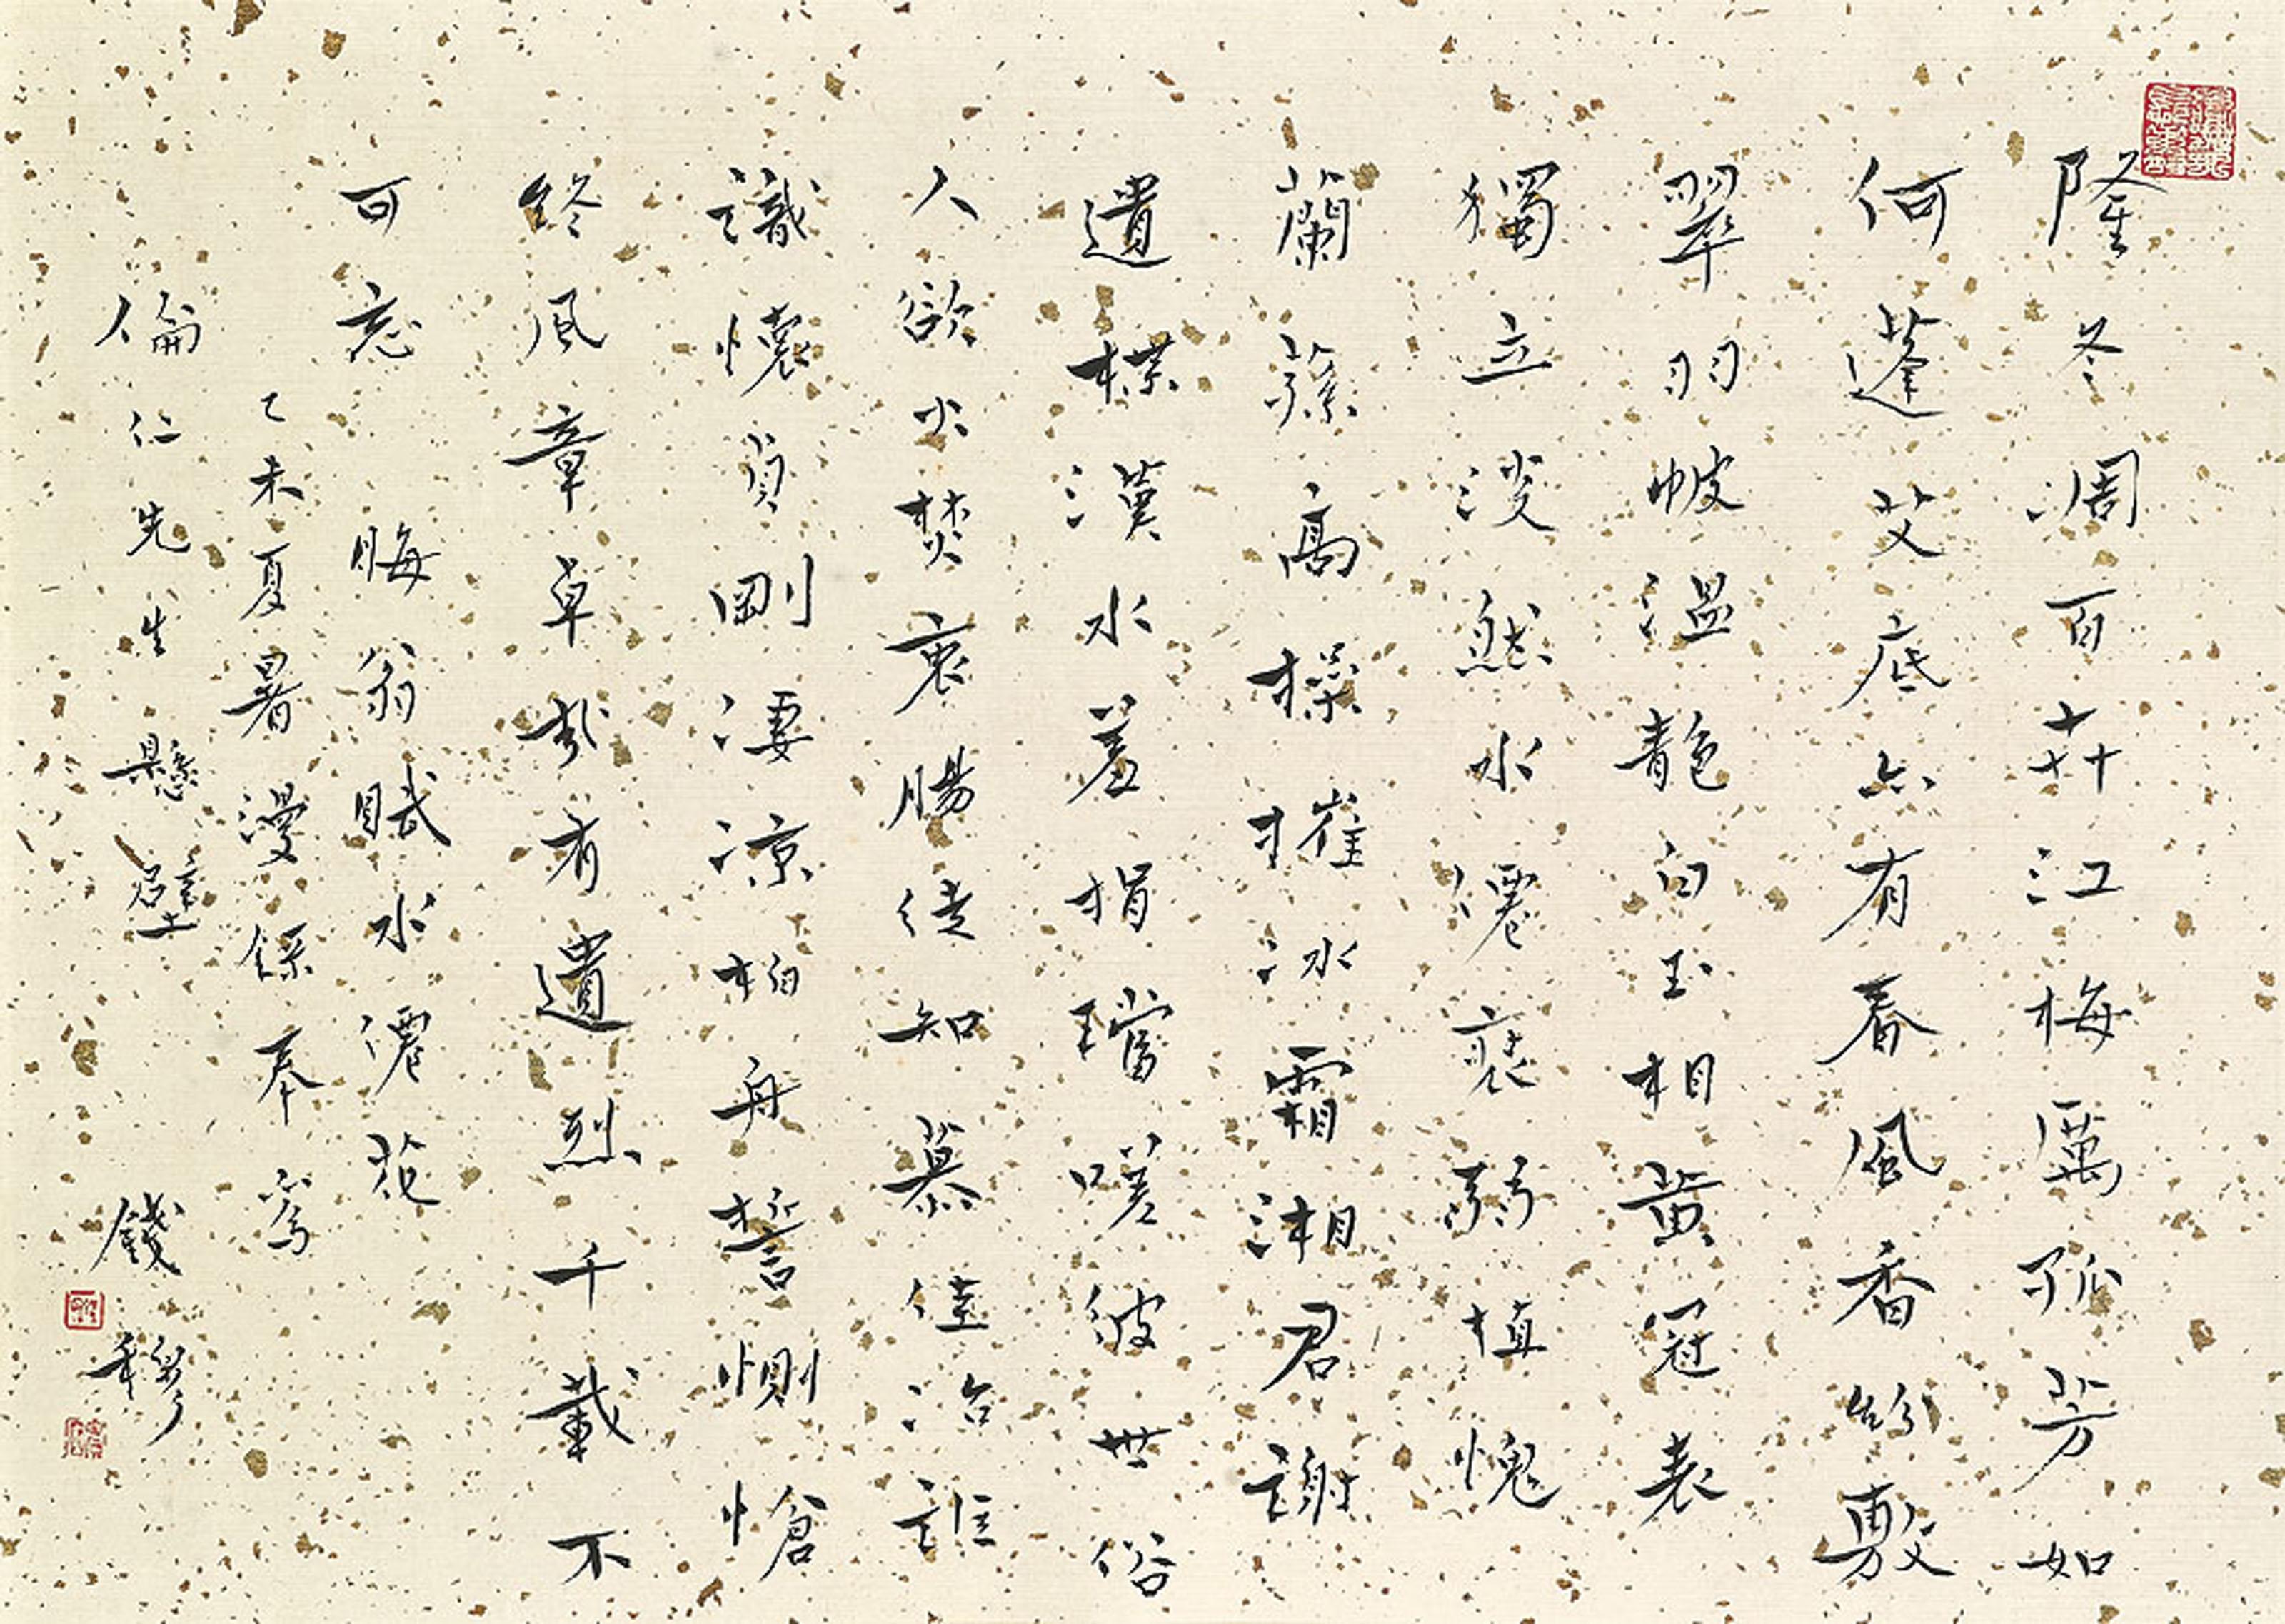 隆冬凋百卉江梅厲孤芳如
何蓬艾底亦有春風香紛敷
翠羽帔溫靘白玉相黃冠表
獨立淡然水僊裝弱植愧
蘭蓀高操摧冰霜湘君謝
遺褋漢水羞捐璫嗟彼世俗
人欲火焚衷腸徒知慕佳冶詎
識懷貞剛淒涼柏舟誓惻愴
終風章卓哉有遺烈千載不
可忘 晦翁賦水僊花
乙未夏暑漫錄奉為
倫仁先生 懸壁 錢穆